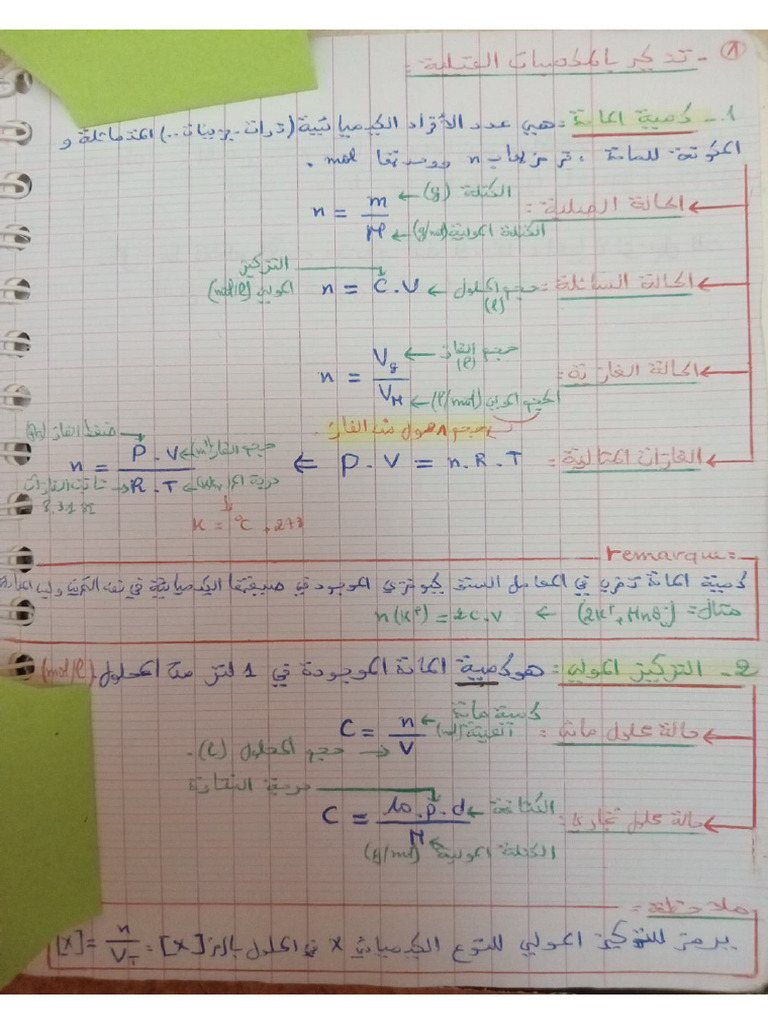 ①
- تذكير بالمكتسبات القبلية :
1 - كمية المادة : هي عدد الأفراد الكيميائية (ذرات - جزيئات ...) المتماثلة و
المكونة للمادة ، نرمز لها ب n ووحدتها mol .
الحالة الصلبة :
n = m / M
الكتلة (g)
الكتلة المولية (g/mol)
الحالة السائلة :
n = C . V
حجم المحلول (l)
التركيز المولي (mol/l)
الحالة الغازية :
n = Vg / VM
حجم الغاز (l)
الحجم المولي (l/mol)
حجم 1 مول من الغاز
الغازات المثالية :
P . V = n . R . T ⇐ n = P . V / R . T
ضغط الغاز (Pa)
حجم الغاز (m³)
ثابت الغازات 8,31 SI
K = °C + 273
remarque :
كمية المادة تضرب في المعامل الستوكيومتري الموجود في صيغتها الكيميائية في
مثال : (2K⁺, MnO₄⁻) ← n(K⁺) = 2C.V
2 - التركيز المولي : هو كمية المادة الموجودة في 1 لتر من المحلول (mol/l)
حالة محلول مائي :
C = n / V
كمية مادة (mol)
حجم المحلول (l) .
حالة محلول تجاري :
C = 10 . p . d / M
درجة النقاوة
الكثافة
الكتلة المولية (g/mol)
ملاحظة :
يرمز للتركيز المولي للنوع الكيميائي X في المحلول بالرمز [X] : [X] = n / VT